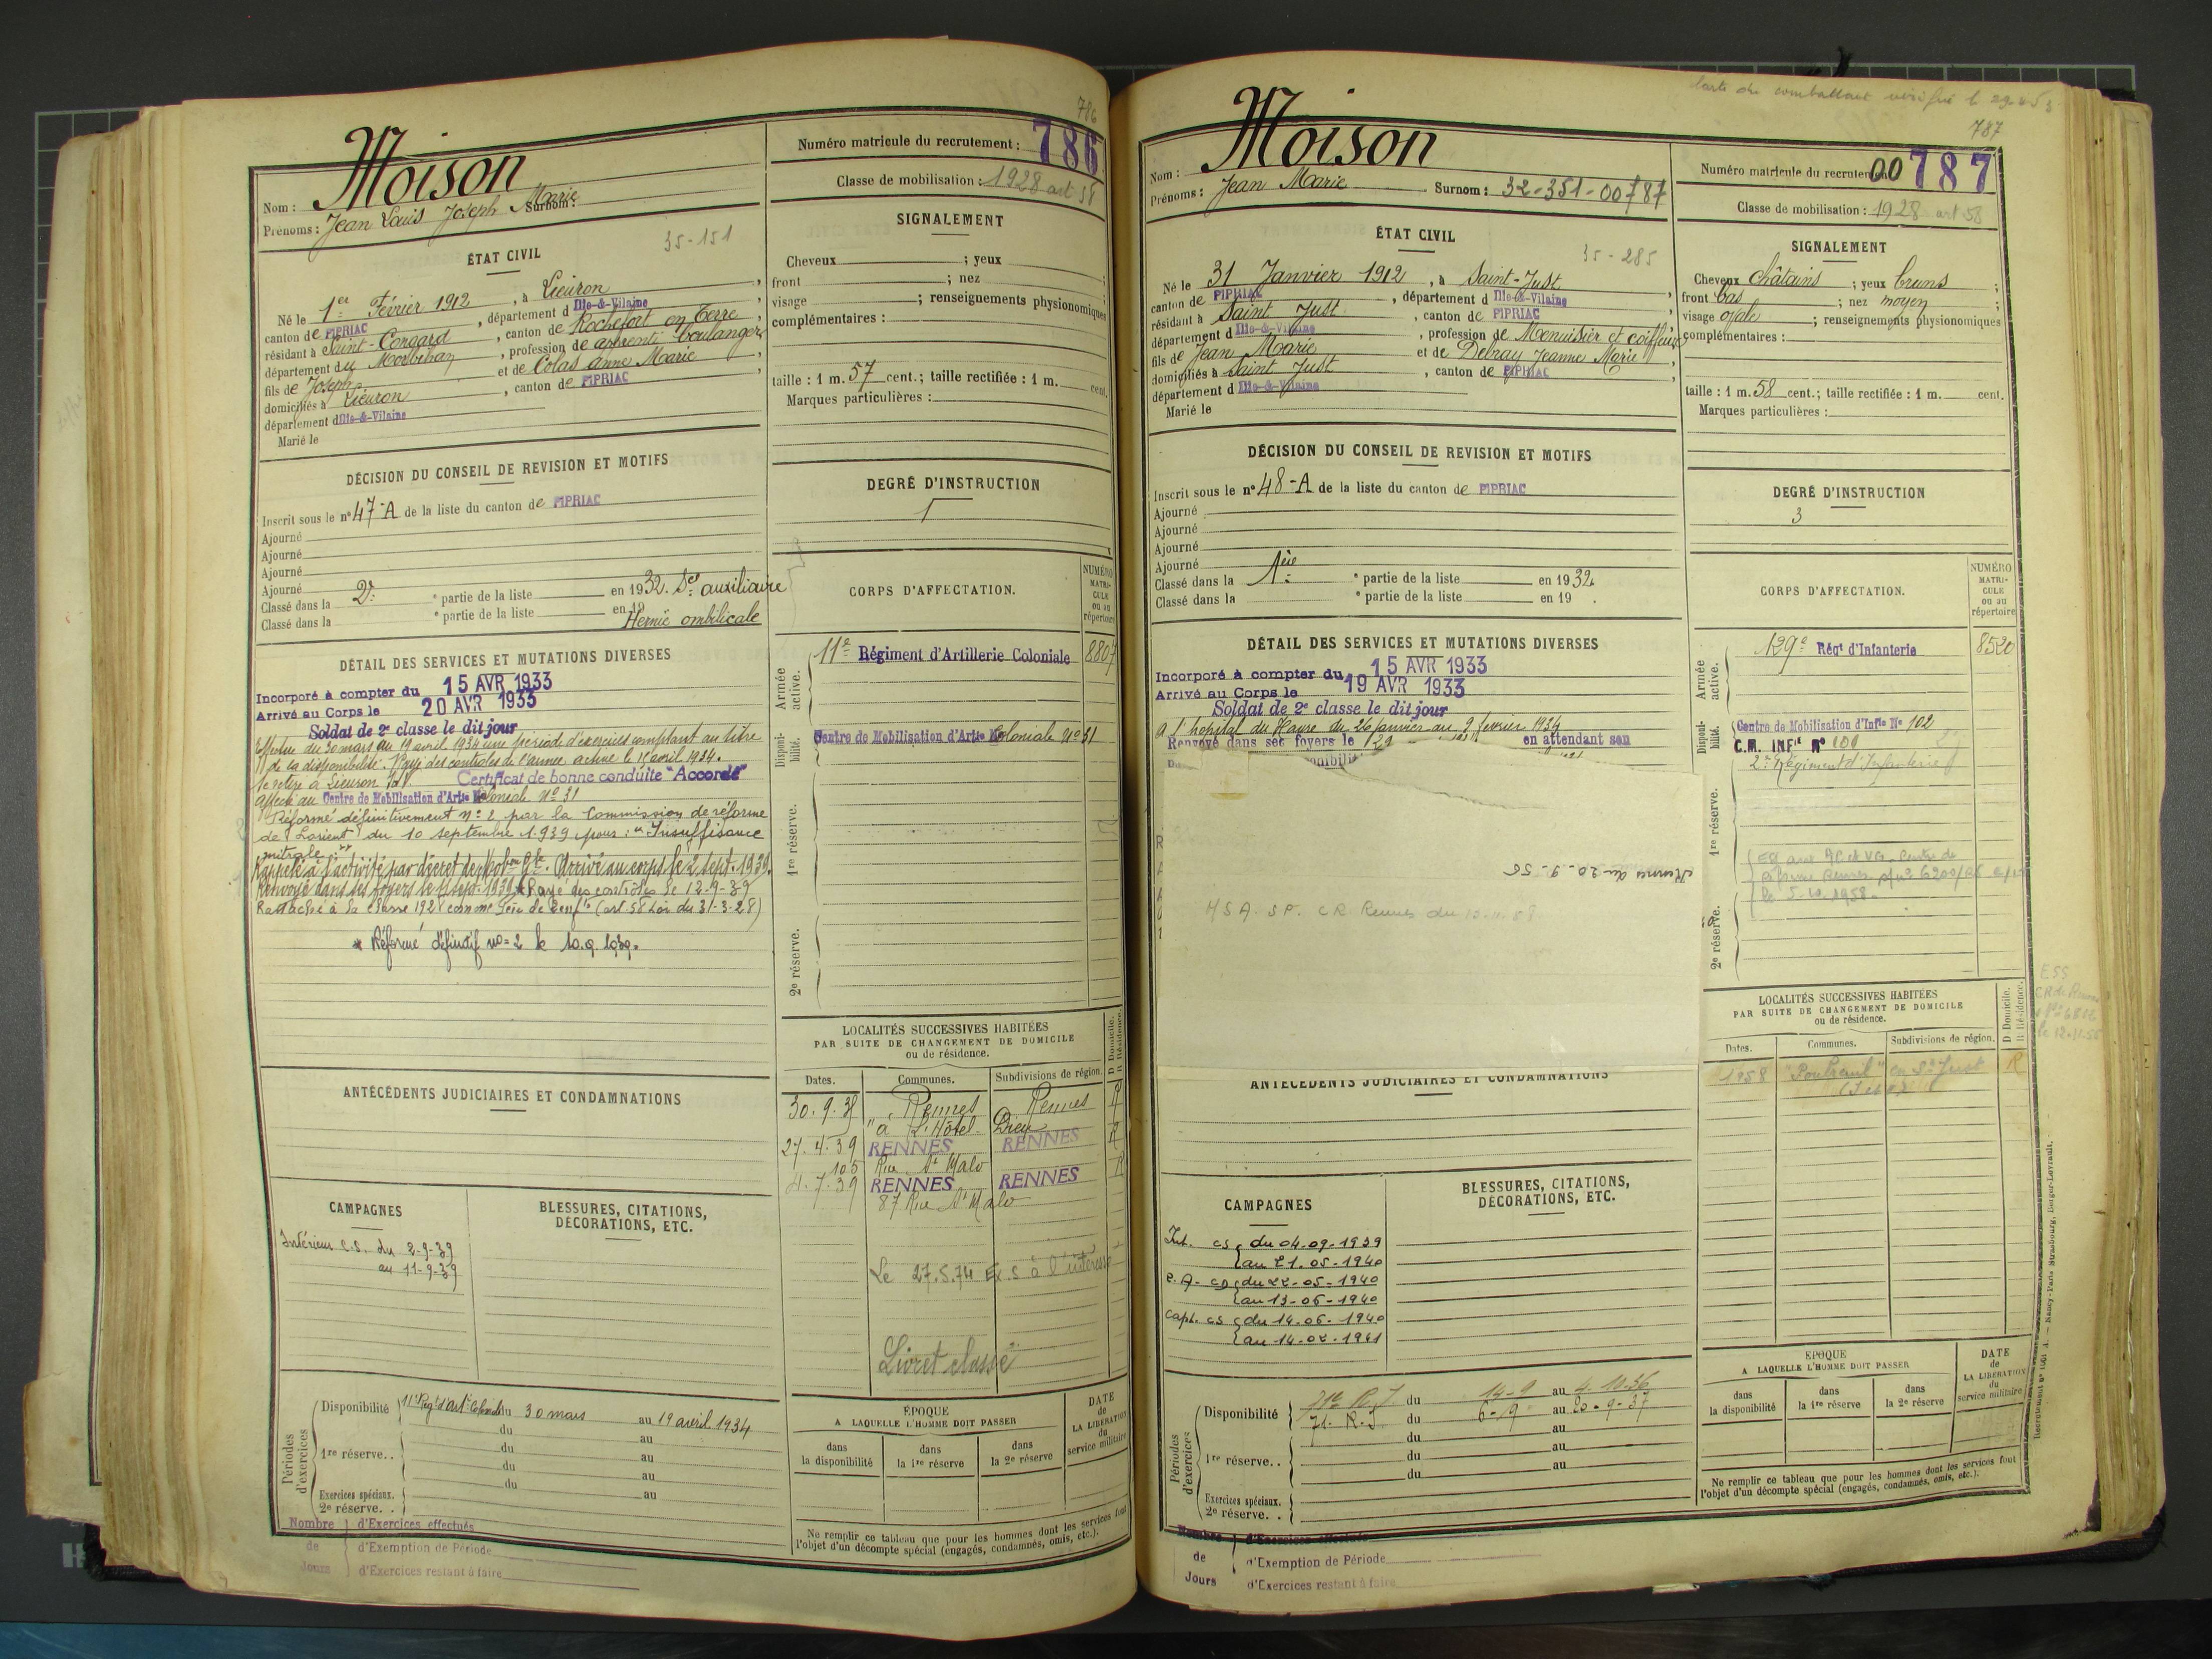 786
Moison
Nom :
Prénoms : Jean Louis Joseph Marie Surnom :
Numéro matricule du recrutement : 786
Classe de mobilisation : 1928 art 58
ÉTAT CIVIL
35-151
Né le 1er Février 1912, à Lieuron,
canton de PIPRIAC, département d Ille-&-Vilaine,
résidant à Saint-Congard, canton de Rochefort en Terre,
département du Morbihan, profession de apprenti boulanger
fils de Joseph et de Colas Anne Marie,
domiciliés à Lieuron, canton de PIPRIAC,
département d Ille-&-Vilaine
Marié le
SIGNALEMENT
Cheveux ; yeux ;
front ; nez ;
visage ; renseignements physionomiques
complémentaires :
taille : 1 m. 57 cent.; taille rectifiée : 1 m. cent.
Marques particulières :
DÉCISION DU CONSEIL DE REVISION ET MOTIFS
Inscrit sous le n° 47-A de la liste du canton de PIPRIAC
Ajourné
Ajourné
Ajourné
Ajourné
Classé dans la 2e partie de la liste en 1932. Sce auxiliaire
Classé dans la e partie de la liste en 19 Hernie ombilicale
DEGRÉ D'INSTRUCTION
1
DÉTAIL DES SERVICES ET MUTATIONS DIVERSES
Incorporé à compter du 15 AVR 1933
Arrivé au Corps le 20 AVR 1933
Soldat de 2e classe le dit jour
Effectue du 30 mars au 19 avril 1934 une période d'exercices comptant au titre
de la disponibilité. Rayé des contrôles de l'armée active le 15 avril 1934.
Se retire à Lieuron Certificat de bonne conduite "Accordé"
Affecté au Centre de Mobilisation d'Artie Coloniale N° 31
Réformé définitivement n° 2 par la Commission de réforme
de Lorient du 10 septembre 1939 pour : "Insuffisance
mitrale"
Rappelé à l'activité par décret de Mobon Gle. Arrivé au corps le 2 sept. 1939.
Renvoyé dans ses foyers le 11 sept. 1939 * Rayé des contrôles le 12-9-39
Rattaché à la classe 1928 comme père de (art. 58 Loi du 31-3-28)
* Réformé définitif n° 2 le 10.9.1939.
CORPS D'AFFECTATION.
NUMÉRO MATRICULE OU AU répertoire
Armée active.
11e Régiment d'Artillerie Coloniale 8807
Disponibilité.
Centre de Mobilisation d'Artie Coloniale N° 31
1re réserve.
2e réserve.
LOCALITÉS SUCCESSIVES HABITÉES
PAR SUITE DE CHANGEMENT DE DOMICILE
ou de résidence.
D. Domicile.
R. Résidence.
Dates. Communes. Subdivisions de région.
Rennes Rennes R
"à L'Hôtel-Dieu
27.4.39 RENNES RENNES R
105 Rue St Malo
4.7.39 RENNES RENNES R
87 Rue St Malo
Le 27.5.74 à l'intéressé
Livret classé
ANTÉCÉDENTS JUDICIAIRES ET CONDAMNATIONS
CAMPAGNES
Intérieur C.S. du 2-9-39
au 11-9-39
BLESSURES, CITATIONS,
DÉCORATIONS, ETC.
Périodes d'exercices
Disponibilité 11e Régt d'Artie Coloniale du 30 mars au 19 avril 1934
du au
1re réserve. . du au
du au
du au
Exercices spéciaux. au
2e réserve. .
ÉPOQUE
A LAQUELLE L'HOMME DOIT PASSER
dans la disponibilité
dans la 1re réserve
dans la 2e réserve
DATE de LA LIBÉRATION du service militaire
Ne remplir ce tableau que pour les hommes dont les services font
l'objet d'un décompte spécial (engagés, condamnés, omis, etc.).
Nombre de Jours
d'Exercices effectués
d'Exemption de Période
d'Exercices restant à faire
Carte du combattant vérifié le
787
Moison
Nom :
Prénoms : Jean Marie Surnom : 32-351-00787
Numéro matricule du recrutement 00787
Classe de mobilisation : 1928 art 58
ÉTAT CIVIL
35-285
Né le 31 Janvier 1912, à Saint-Just,
canton de PIPRIAC, département d Ille-&-Vilaine,
résidant à Saint Just, canton de PIPRIAC
département d Ille-&-Vilaine, profession de Menuisier et coiffeur
fils de Jean Marie et de Debray Jeanne Marie,
domiciliés à Saint Just, canton de PIPRIAC,
département d Ille-&-Vilaine
Marié le
SIGNALEMENT
Cheveux châtains ; yeux bruns ;
front bas ; nez moyen ;
visage ovale ; renseignements physionomiques
complémentaires :
taille : 1 m. 58 cent.; taille rectifiée : 1 m. cent.
Marques particulières :
DÉCISION DU CONSEIL DE REVISION ET MOTIFS
Inscrit sous le n° 48-A de la liste du canton de PIPRIAC
Ajourné
Ajourné
Ajourné
Ajourné
Classé dans la 1ère partie de la liste en 1932.
Classé dans la e partie de la liste en 19 .
DEGRÉ D'INSTRUCTION
3
DÉTAIL DES SERVICES ET MUTATIONS DIVERSES
Incorporé à compter du 15 AVR 1933
Arrivé au Corps le 19 AVR 1933
Soldat de 2e classe le dit jour
A l'hôpital du Havre du 26 janvier au 9 février 1934
Renvoyé dans ses foyers le en attendant son
Rennes du 20-9-55
CR Rennes du
CORPS D'AFFECTATION.
NUMÉRO MATRICULE ou au répertoire
Armée active.
129e Régt d'Infanterie 8520
Disponibilité.
Centre de Mobilisation d'Infie N° 102
C.M. INFie N°
2e Régiment d'Infanterie
1re réserve.
Centre de
Réforme Rennes
le 5-10-1958.
2e réserve.
LOCALITÉS SUCCESSIVES HABITÉES
PAR SUITE DE CHANGEMENT DE DOMICILE
ou de résidence.
D. Domicile.
R. Résidence.
Dates. Communes. Subdivisions de région.
1958 en St Just R
ANTÉCÉDENTS JUDICIAIRES ET CONDAMNATIONS
CAMPAGNES
Int. CS du 04-09-1939
au 21-05-1940
du 22-05-1940
au 13-06-1940
Capt. CS du 14-06-1940
au 14-02-1941
BLESSURES, CITATIONS,
DÉCORATIONS, ETC.
Périodes d'exercices
Disponibilité R.I du 14-9 au 4-10.36
71. R.I du 6-9 au 20-9-37
du au
1re réserve. . du au
du au
Exercices spéciaux.
2e réserve. .
ÉPOQUE
A LAQUELLE L'HOMME DOIT PASSER
dans la disponibilité
dans la 1re réserve
dans la 2e réserve
DATE de LA LIBÉRATION du service militaire
Ne remplir ce tableau que pour les hommes dont les services font
l'objet d'un décompte spécial (engagés, condamnés, omis, etc.).
Nombre de Jours
d'Exercices effectués
d'Exemption de Période
d'Exercices restant à faire